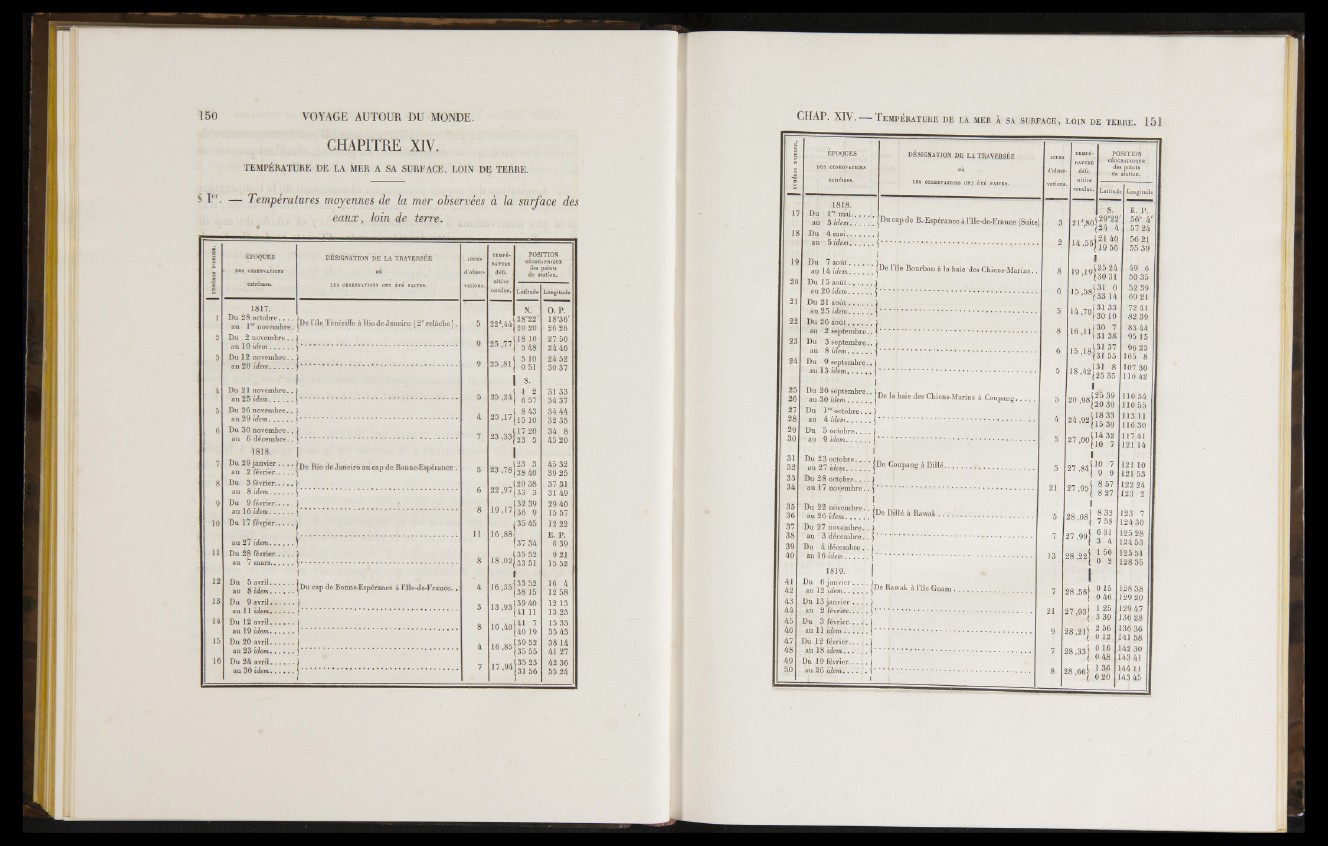 150 VOYAGE AUTOUR DU MONDE.
CHAPITRE XIV.
TEMPÉRATURE DE LA MER A SA SURFACE, LOIN DE TERRE.
§ Ier. — Températures moyennes de la mer observées à la surface des
eaux, loin de terre.
NUMÉROS D'ORDRE. ÉPOQUES DES OBSERVATIONS extrêmes. DÉSIGNATION DE LA TRAVERSÉE OÙ LES OBSERVATIONS ONT ÉTÉ FAITES. JOURS d'obser-vations. TEMPÉ-RATURE défi-nitive conclue. POSITION GÉOGRAPHIQUE des points de station. Latitude Longitude
1817. N. O. P.
1 Du 28 octobre.... De l'île Ténériffe à Rio de Janeiro (2e relâche). 5 22d,44 28°22' 18°36'
au 1er novembre. 20 20 26 26
2 Du 2 novembre.. 9 25,77 18 10 27 50
au 10 idem...... 5 48 24 46
3 Du 12 novembre.. 9 25,81 5 10 24 52
au 20 idem...... 0 51 30 37
S.
4 Du 21 novembre.. 5 25,24 1 2 31 33
au 25 idem...... 6 57 34 37
5 Du 26 novembre.. 4 25,17 8 43 34 44
au 29 idem...... 15 10 32 35
6 Du 30 novembre.. 7 23,33 17 20 34 8
au 6 décembre.. 23 5 45 20
1818.
7 Du 29 janvier.... De Rio de Janeiro au cap de Bonne-Espérance. 5 23,78 23 3 45 32
au 2 février.... 28 40 39 25
8 Du 3 février..... 6 22,97 29 38 37 31
au 8 idem...... 33 3 31 49
9 Du 9 février.... 8 19,17 32 39 29 40
au 16 idem...... 36 9 15 57
10 Du 17 février..... 11 16,88 35 45 12 22
E. P.
au 27 idem...... 37 34 6 39
11 Du 28 février.... 8 18,02 35 52 9 21
au 7 mars...... 33 51 15 52
12 Du 5 avril...... Du cap de Bonne-Espérance à l'Ile-de-France.. 4 16,35 33 52 16 4
au 8 idem...... 38 15 12 58
13 Du 9 avril...... 3 13,93 39 40 12 13
au 11 idem...... 41 11 13 23
14 Du 12 avril...... 8 16,40 41 7 15 33
au 19 idem...... 40 19 35 43
15 Du 20 avril...... 4 16,85 39 52 38 14
au 23 idem...... 35 55 41 27
16 Du 24 avril...... 7 17,94 35 23 42 36
au 30 idem...... 31 56 55 24
CHAP. XIV.— TEMPÉRATURE DE LA MER À SA SURFACE, LOIN DE TERRE. 151
NUMÉROS D'ORDRE. ÉPOQUES DES OBSERVATIONS extrêmes. DÉSIGNATION DE LA TRAVERSÉE OÙ LES OBSERVATIONS ONT ÉTÉ FAITES. JOURS d'obser-vations. TEMPÉ-RATURE défi-nitive conclue. POSITION GÉOGRAPHIQUE des points de station. Latitude Longitude
1818. S. E. P.
17 Du 1er mai...... Du cap de B.-Espérance à l'Ile-de-France (Suite) 3 21d,80 29°22' 56° 4'
au 3 idem...... 24 4 57 24
18 Du 4 mai...... 2 14,55 21 40 56 21
au 5 idem...... 19 56 55 39
19 Du 7 août...... De l'île Bourbon à la baie des Chiens-Marins.. 8 19,19 25 24 49 6
au 14 idem...... 30 31 50 35
20 Du 15 août...... 6 15,58 31 0 52 59
au 20 idem...... 33 14 60 21
21 Du 21 août...... 5 14,70 31 33 72 41
au 25 idem...... 30 19 82 39
22 Du 26 août...... 8 16,11 30 7 83 44
au 2 septembre.. 31 38 95 15
23 Du 3 septembre.. 6 15,18 31 37 96 25
au 8 idem...... 31 55 105 8
24 Du 9 septembre.. 5 18,42 31 8 107 30
au 13 idem...... 25 35 110 42
25 Du 26 septembre.. De la baie des Chiens-Marins à Coupang..... 5 20,98 25 39 110 54
26 au 30 idem...... 20 30 110 55
27 Du 1er octobre... 4 24,02 18 33 113 11
28 au 4 idem...... 15 30 116 30
29 Du 5 octobre.... 5 27,00 14 32 117 41
30 au 9 idem...... 10 7 121 14
31 Du 23 octobre.... De Coupang à Dillé........ 5 27,84 10 7 121 10
32 au 27 idem...... 9 9 121 53
33 Du 28 octobre.... 21 27,95 8 57 122 24
34 au 17 novembre.. 8 27 123 2
35 Du 22 novembre.. De Dillé à Rawak........ 5 28,08 8 32 123 7
36 au 26 idem...... 7 58 124 30
37 Du 27 novembre.. 7 27,99 6 31 125 28
38 au 3 décembre.. 3 4 124 53
39 Du 4 décembre.. 13 28,22 1 56 125 51
40 au 16 idem...... 0 2 128 35
1819.
41 Du 6 janvier.... De Rawak à l'île Guam........ 7 28,58 0 15 128 38
42 au 12 idem...... 0 46 129 20
43 Du 13 janvier.... 21 27,93 1 25 129 47
44 au 2 février.... 3 39 136 28
45 Du 3 février.... 9 28,21 2 56 136 36
46 au 11 idem...... 0 12 141 58
47 Du 12 février.... 7 28,33 0 16 142 30
48 au 18 idem...... 0 48 143 41
49 Du 19 février.... 8 28,66 1 36 144 11
50 au 26 idem...... 0 20 143 45